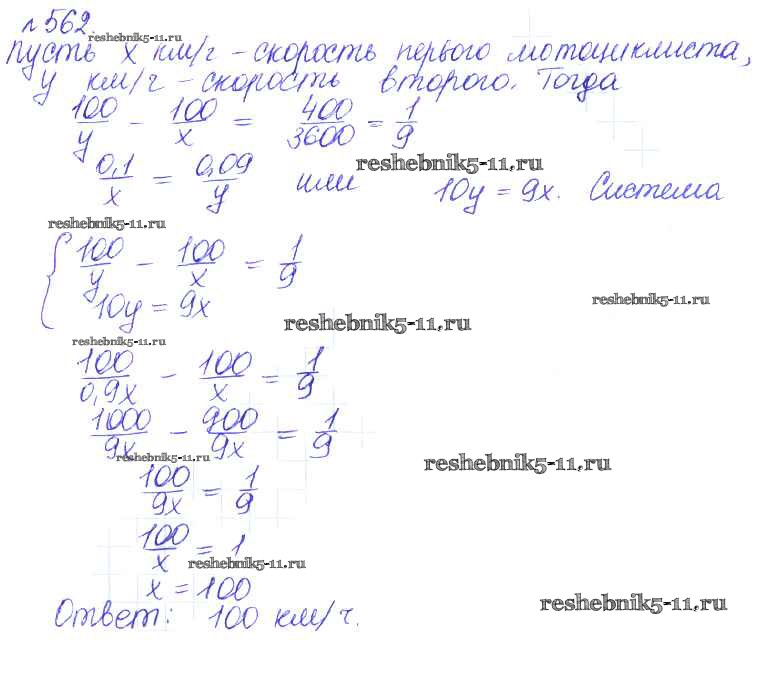 №562
reshebnik5-11.ru
Пусть x км/ч - скорость первого мотоциклиста,
y км/ч - скорость второго. Тогда
100/y - 100/x = 400/3600 = 1/9
reshebnik5-11.ru
0,1/x = 0,09/y или 10y = 9x. Система
reshebnik5-11.ru
{ 100/y - 100/x = 1/9
10y = 9x
reshebnik5-11.ru
reshebnik5-11.ru
reshebnik5-11.ru
100/0,9x - 100/x = 1/9
1000/9x - 900/9x = 1/9
reshebnik5-11.ru
reshebnik5-11.ru
100/9x = 1/9
100/x = 1
reshebnik5-11.ru
x = 100
reshebnik5-11.ru
Ответ: 100 км/ч.